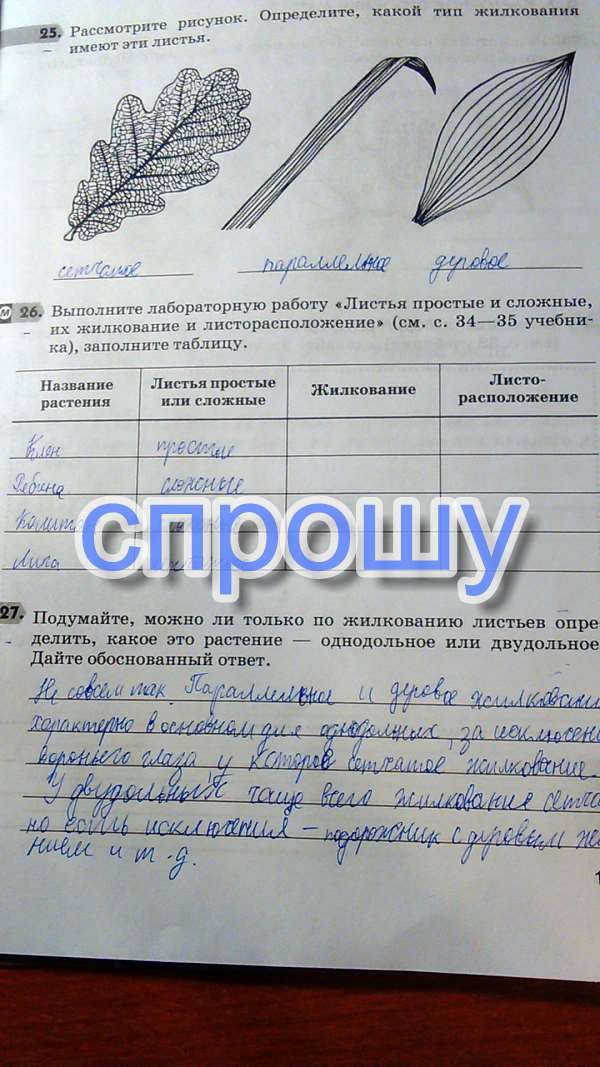 25. Рассмотрите рисунок. Определите, какой тип жилкования
имеют эти листья.
сетчатое параллельное дуговое
М 26. Выполните лабораторную работу «Листья простые и сложные,
их жилкование и листорасположение» (см. с. 34—35 учебни-
ка), заполните таблицу.
Название растения Листья простые или сложные Жилкование Листо-расположение
Клен простые
Рябина сложные
спрошу
Липа
27. Подумайте, можно ли только по жилкованию листьев опре
делить, какое это растение — однодольное или двудольное
Дайте обоснованный ответ.
Не совсем так. Параллельное и дуговое жилковани
характерно в основном для однодольных, за исключени
вороньего глаза у которого сетчатое жилкование.
У двудольных чаще всего жилкование сетча
но есть исключения – подорожник с дуговым жил
нием и т.д.